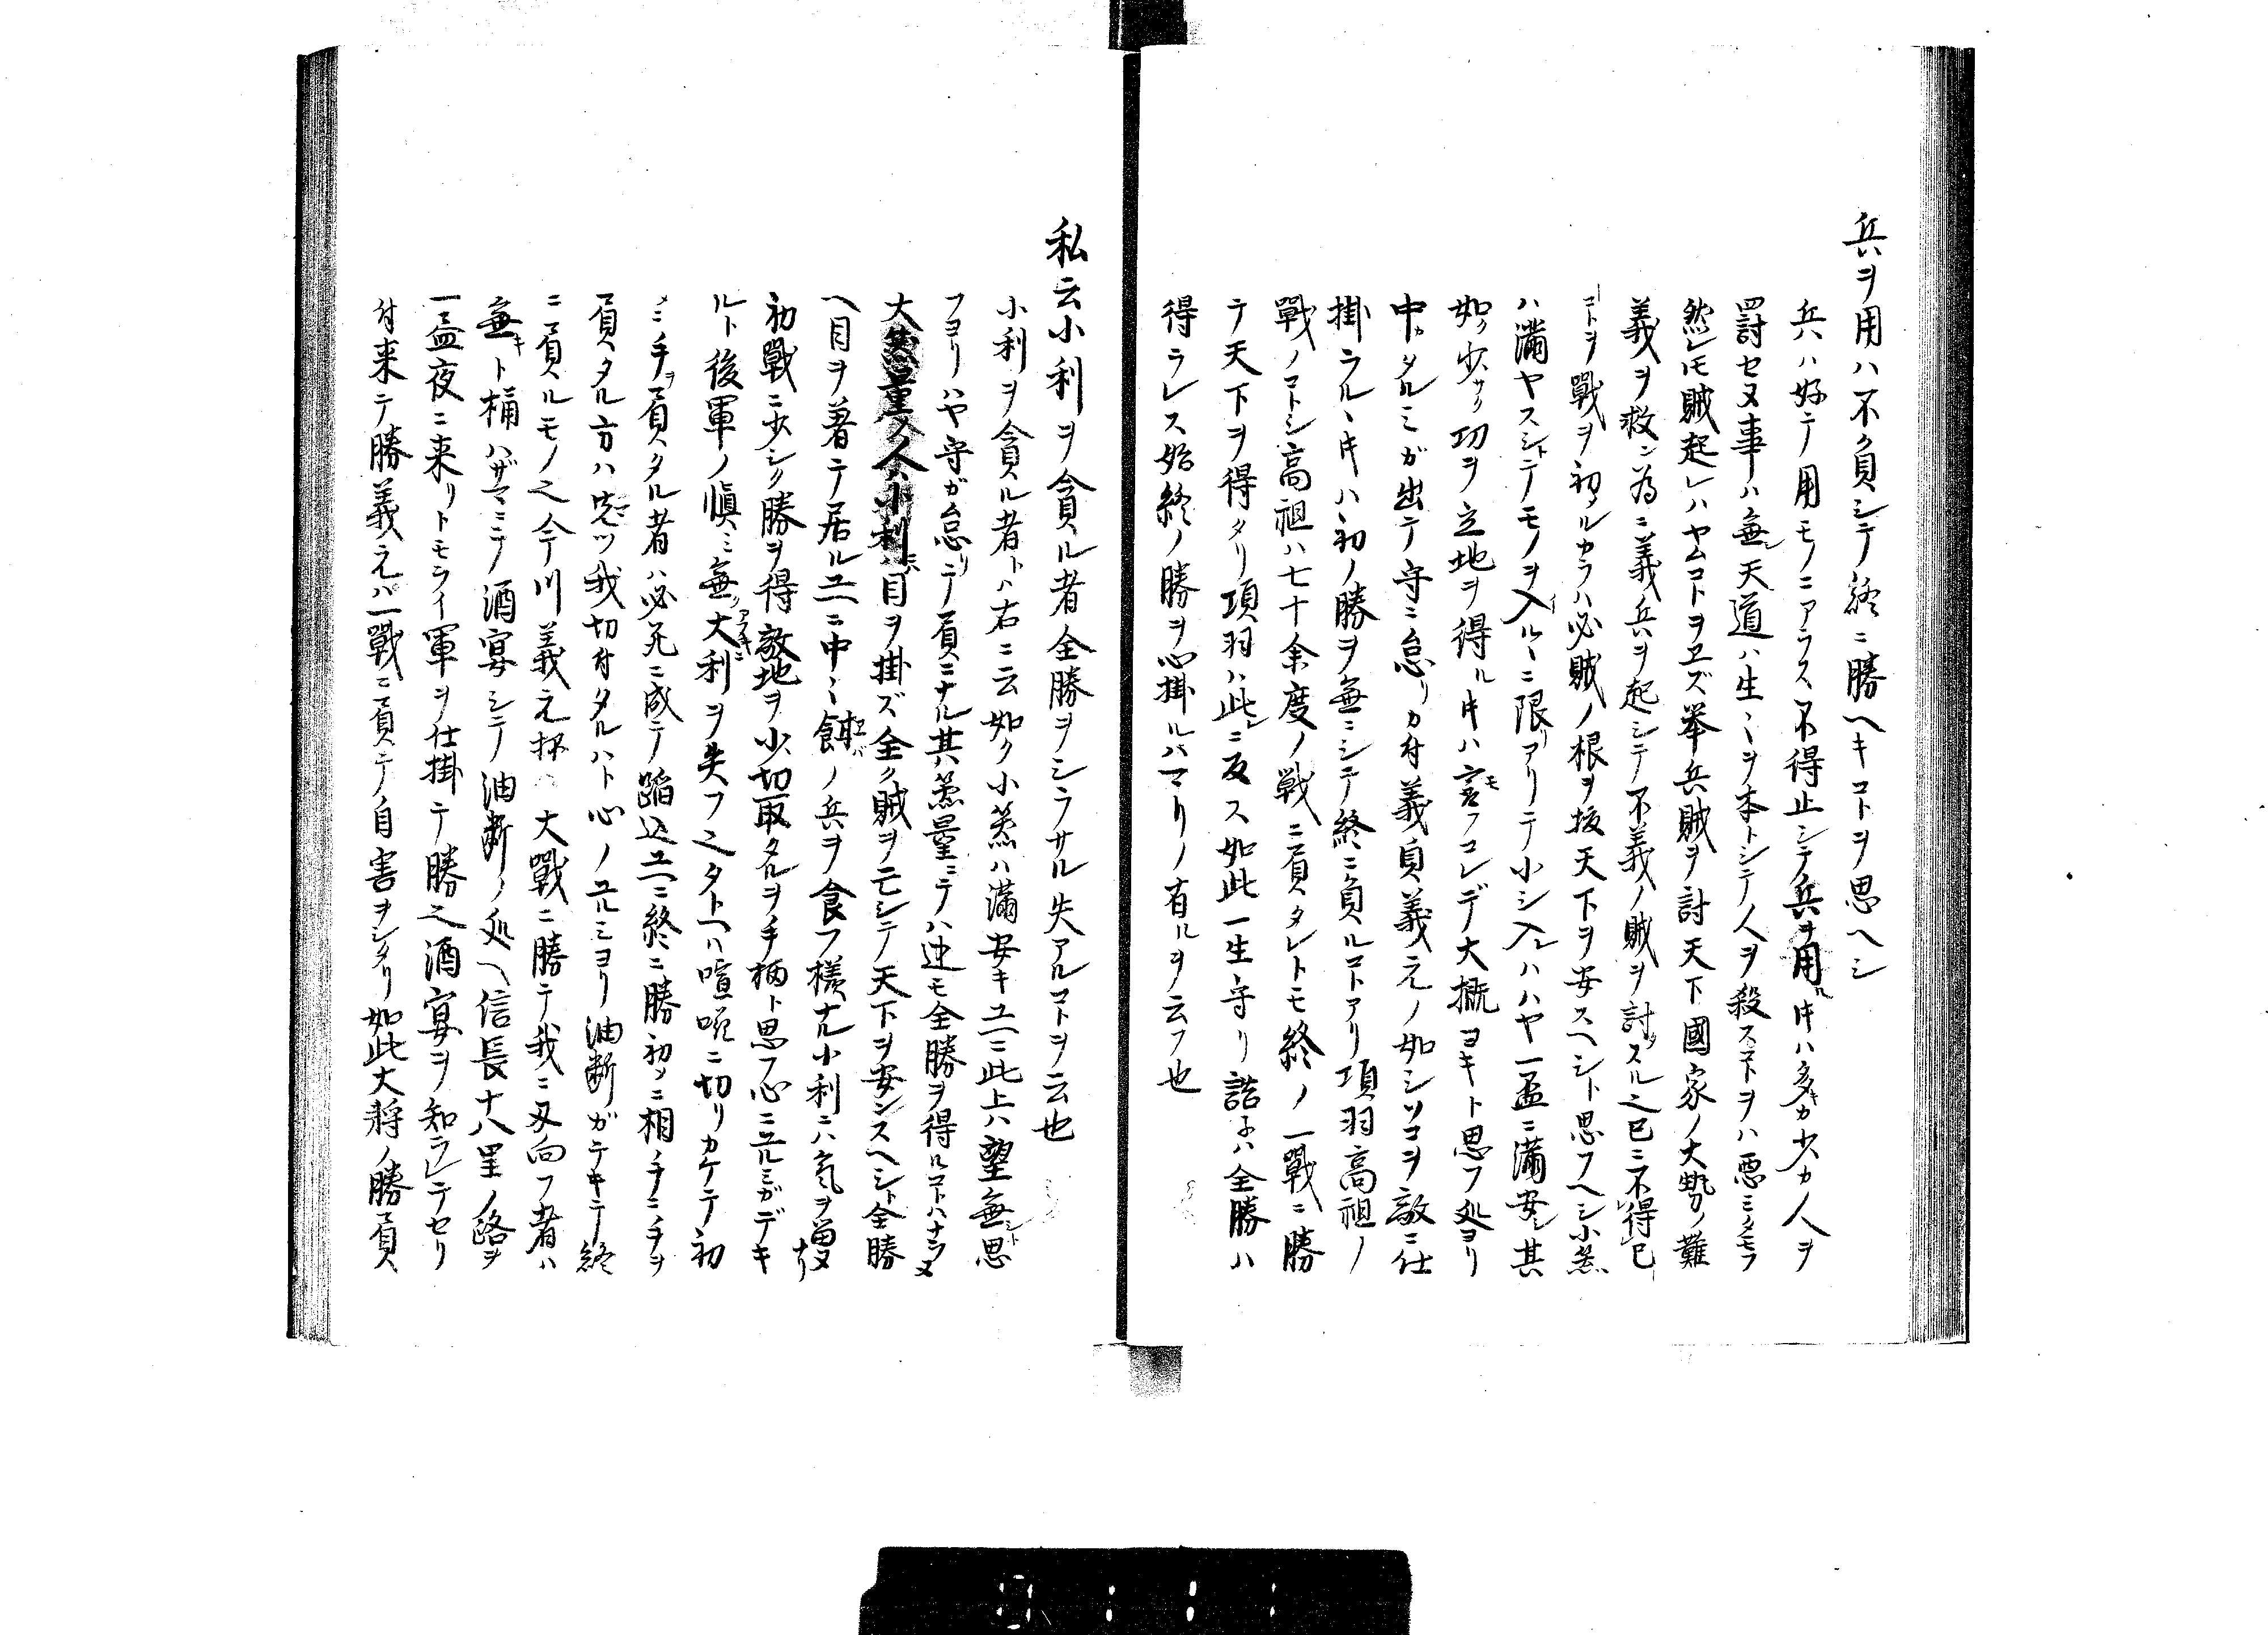 兵ヲ用ハ不負シテ終ニ勝ヘキコトヲ思ヘシ
兵ハ好テ用モノニアラス不得止シテ兵ヲ用ル片ハ多キカ少カ人ヲ
罸セヌ事ハ無シ天道ハ生〻ヲ本トシテ人ヲ殺スコトヲハ悪ミタモフ
然レ𪜈賊起レハヤムコトヲヱズ挙兵賊ヲ討天下國家ノ大勢ノ難
義ヲ救ン為ニ義兵ヲ起シテ不義ノ賊ヲ討スル之已ニ不得已
コトヲ戰ヲ初ルカラハ必賊ノ根ヲ抜天下ヲ安スヘシト思フヘシ小羔
ハ滿ヤスシトテモノヲ入ルヽニ限リアリテ小シ入レハハヤ一盃ニ滿安シ其
如ク少サク功ヲ立地ヲ得ル片ハ言モフコレデ大概ヨキト思フ処ヨリ
中カタルミガ出テ守ニ怠リカ付義貞義元ノ如シソコヲ敵ニ仕
掛ラルヽ片ハ初ノ勝ヲ無ニシテ終ニ負ルコトアリ項羽高祖ノ
戰ノコトシ高祖ハ七十余度ノ戦ニ負タレトモ終ノ一戰ニ勝
テ天下ヲ得タリ項羽ハ此レニ反ス如此一生守リ詰子ハ全勝ハ
得ラレス始終ノ勝ヲ心掛ルハマリノ有ルヲ云フ也
私云小利ヲ貪ル者全勝ヲシラサル失アルコトヲ云也
小利ヲ貪ル者トハ右ニ云如ク小羔ハ滿安キユヘニ此上ハ望無シト思
フヨリハヤ守ガ怠リテ負ニナル其羔量ニテハ迚モ全勝ヲ得ルコトハナラヌ
大羔量ノ人ハ小利ニ目ヲ掛ズ全ク賊ヲ亡シテ天下ヲ安ンスヘシト全勝
ヘ目ヲ着テ居ルユヘニ中〻餌ノ兵ヲ食フ様ナル小利ニハ氣ヲ留ヌナリ
初戰ニ少シク勝ヲ得敵地ヲ少切取タルヲ手柄ト思フ心ニユルミガデキ
ルト後軍ノ愼ミ無ク大利ヲ失フ之タトヘハ喧嘩ニ切リカケテ初
メニ手ヲ負タル者ハ必死ニ成テ蹈込ユヘニ終ニ勝初メニ相手ニ手ヲ
負タル方ハ先ツ我切付タルハト心ノユルミヨリ油断ガデキテ終
ニ負ルモノ之今川義元抔ハ大戰ニ勝テ我ニ刃向フ者ハ
無キト桶ハザマニテ酒宴シテ油断ノ処ヘ信長十八里ノ路ヲ
一盃夜ニ来リトモライ軍ヲ仕掛テ勝之酒宴ヲ知ラレテセリ
付来テ勝義元ハ一戰ニ負テ自害ヲシタリ如此大将ノ勝負ハ